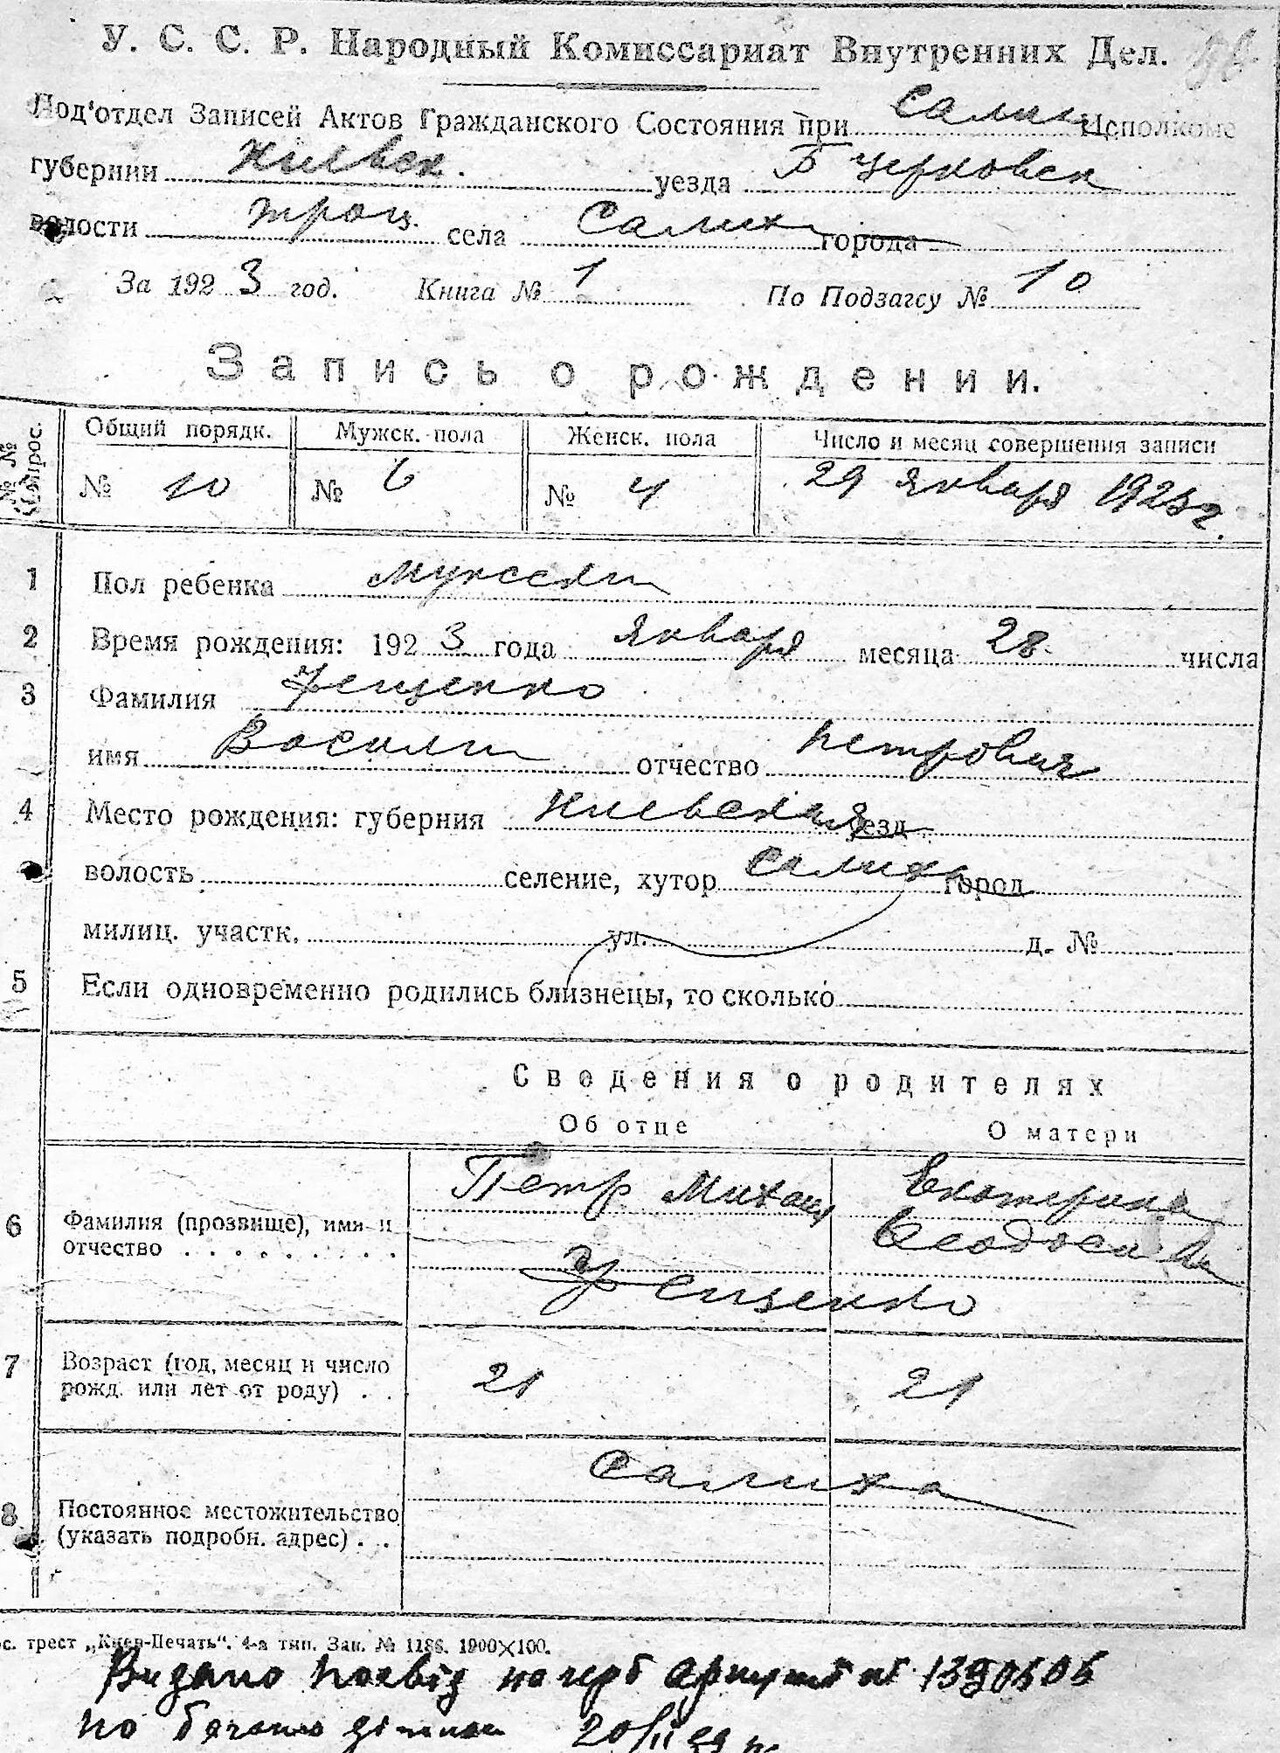 У. С. С. Р. Народный Комиссариат Внутренних Дел.
Под'отдел Записей Актов Гражданского Состояния при Салих Исполкоме
губернии Киевск. уезда Б Церковск
волости Троц. села Салиха города
За 1923 год. Книга № 1 По Подзагсу № 10
Запись о рождении.
№ № опрос. Общий порядк. Мужск. пола Женск. пола Число и месяц совершения записи
№ 10 № 6 № 4 29 января 1923 г.
1 Пол ребенка мужской
2 Время рождения: 1923 года января месяца 28 числа
3 Фамилия
имя Василий отчество Петрович
4 Место рождения: губерния Киевская уезд
волость селение, хутор Салиха город
милиц. участк. ул. д. №
5 Если одновременно родились близнецы, то сколько
Сведения о родителях
Об отце О матери
6 Фамилия (прозвище), имя и отчество Петр Михаил Екатерина
7 Возраст (год, месяц и число рожд. или лет от роду) 21 21
8 Постоянное местожительство (указать подробн. адрес) Салиха
ос. трест „Киев-Печать“. 4-а тип. Зак. № 1186. 1900×100.
Видано
20/II